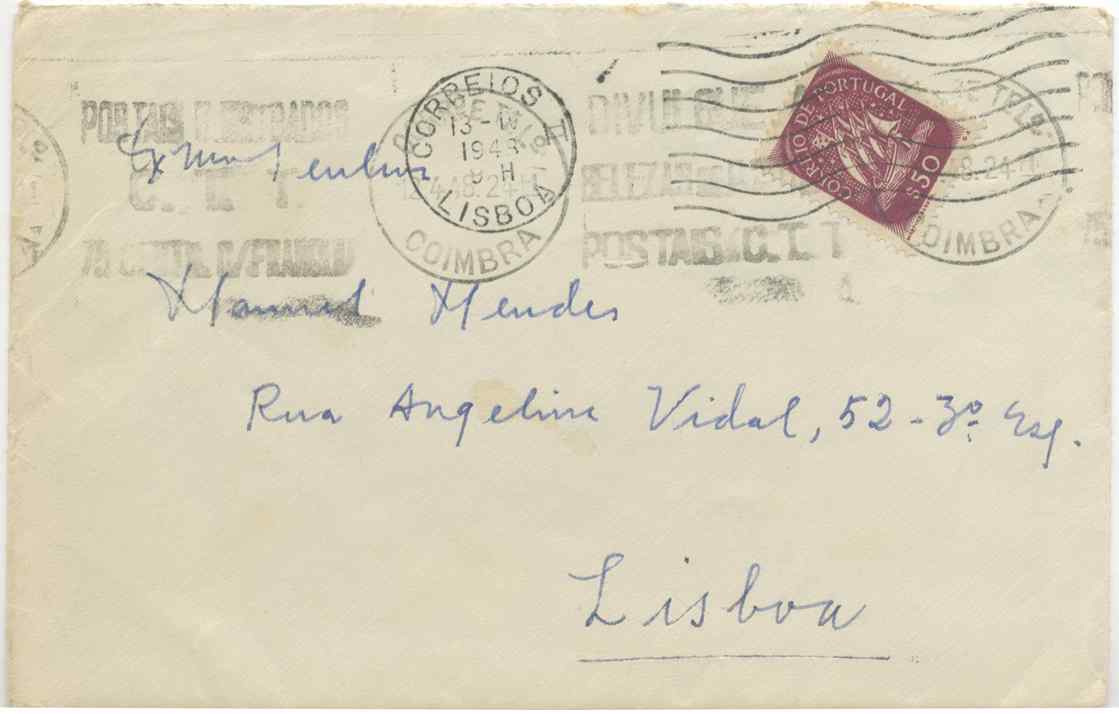 CORREIOS
13-IV
1948
9 H
LISBOA
COIMBRA
POSTAIS ILUSTRADOS
C. T. T.
DIVULGUE A
POSTAIS C. T. T.
CORREIO DE PORTUGAL
$50
COIMBRA
Exmo Senhor
Manuel Mendes
Rua Angelina Vidal, 52-3º Esq.
Lisboa